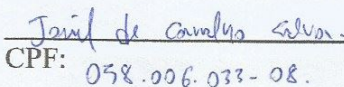 Jamil de Carvalho Silva.
CPF: 058.006.033-08.